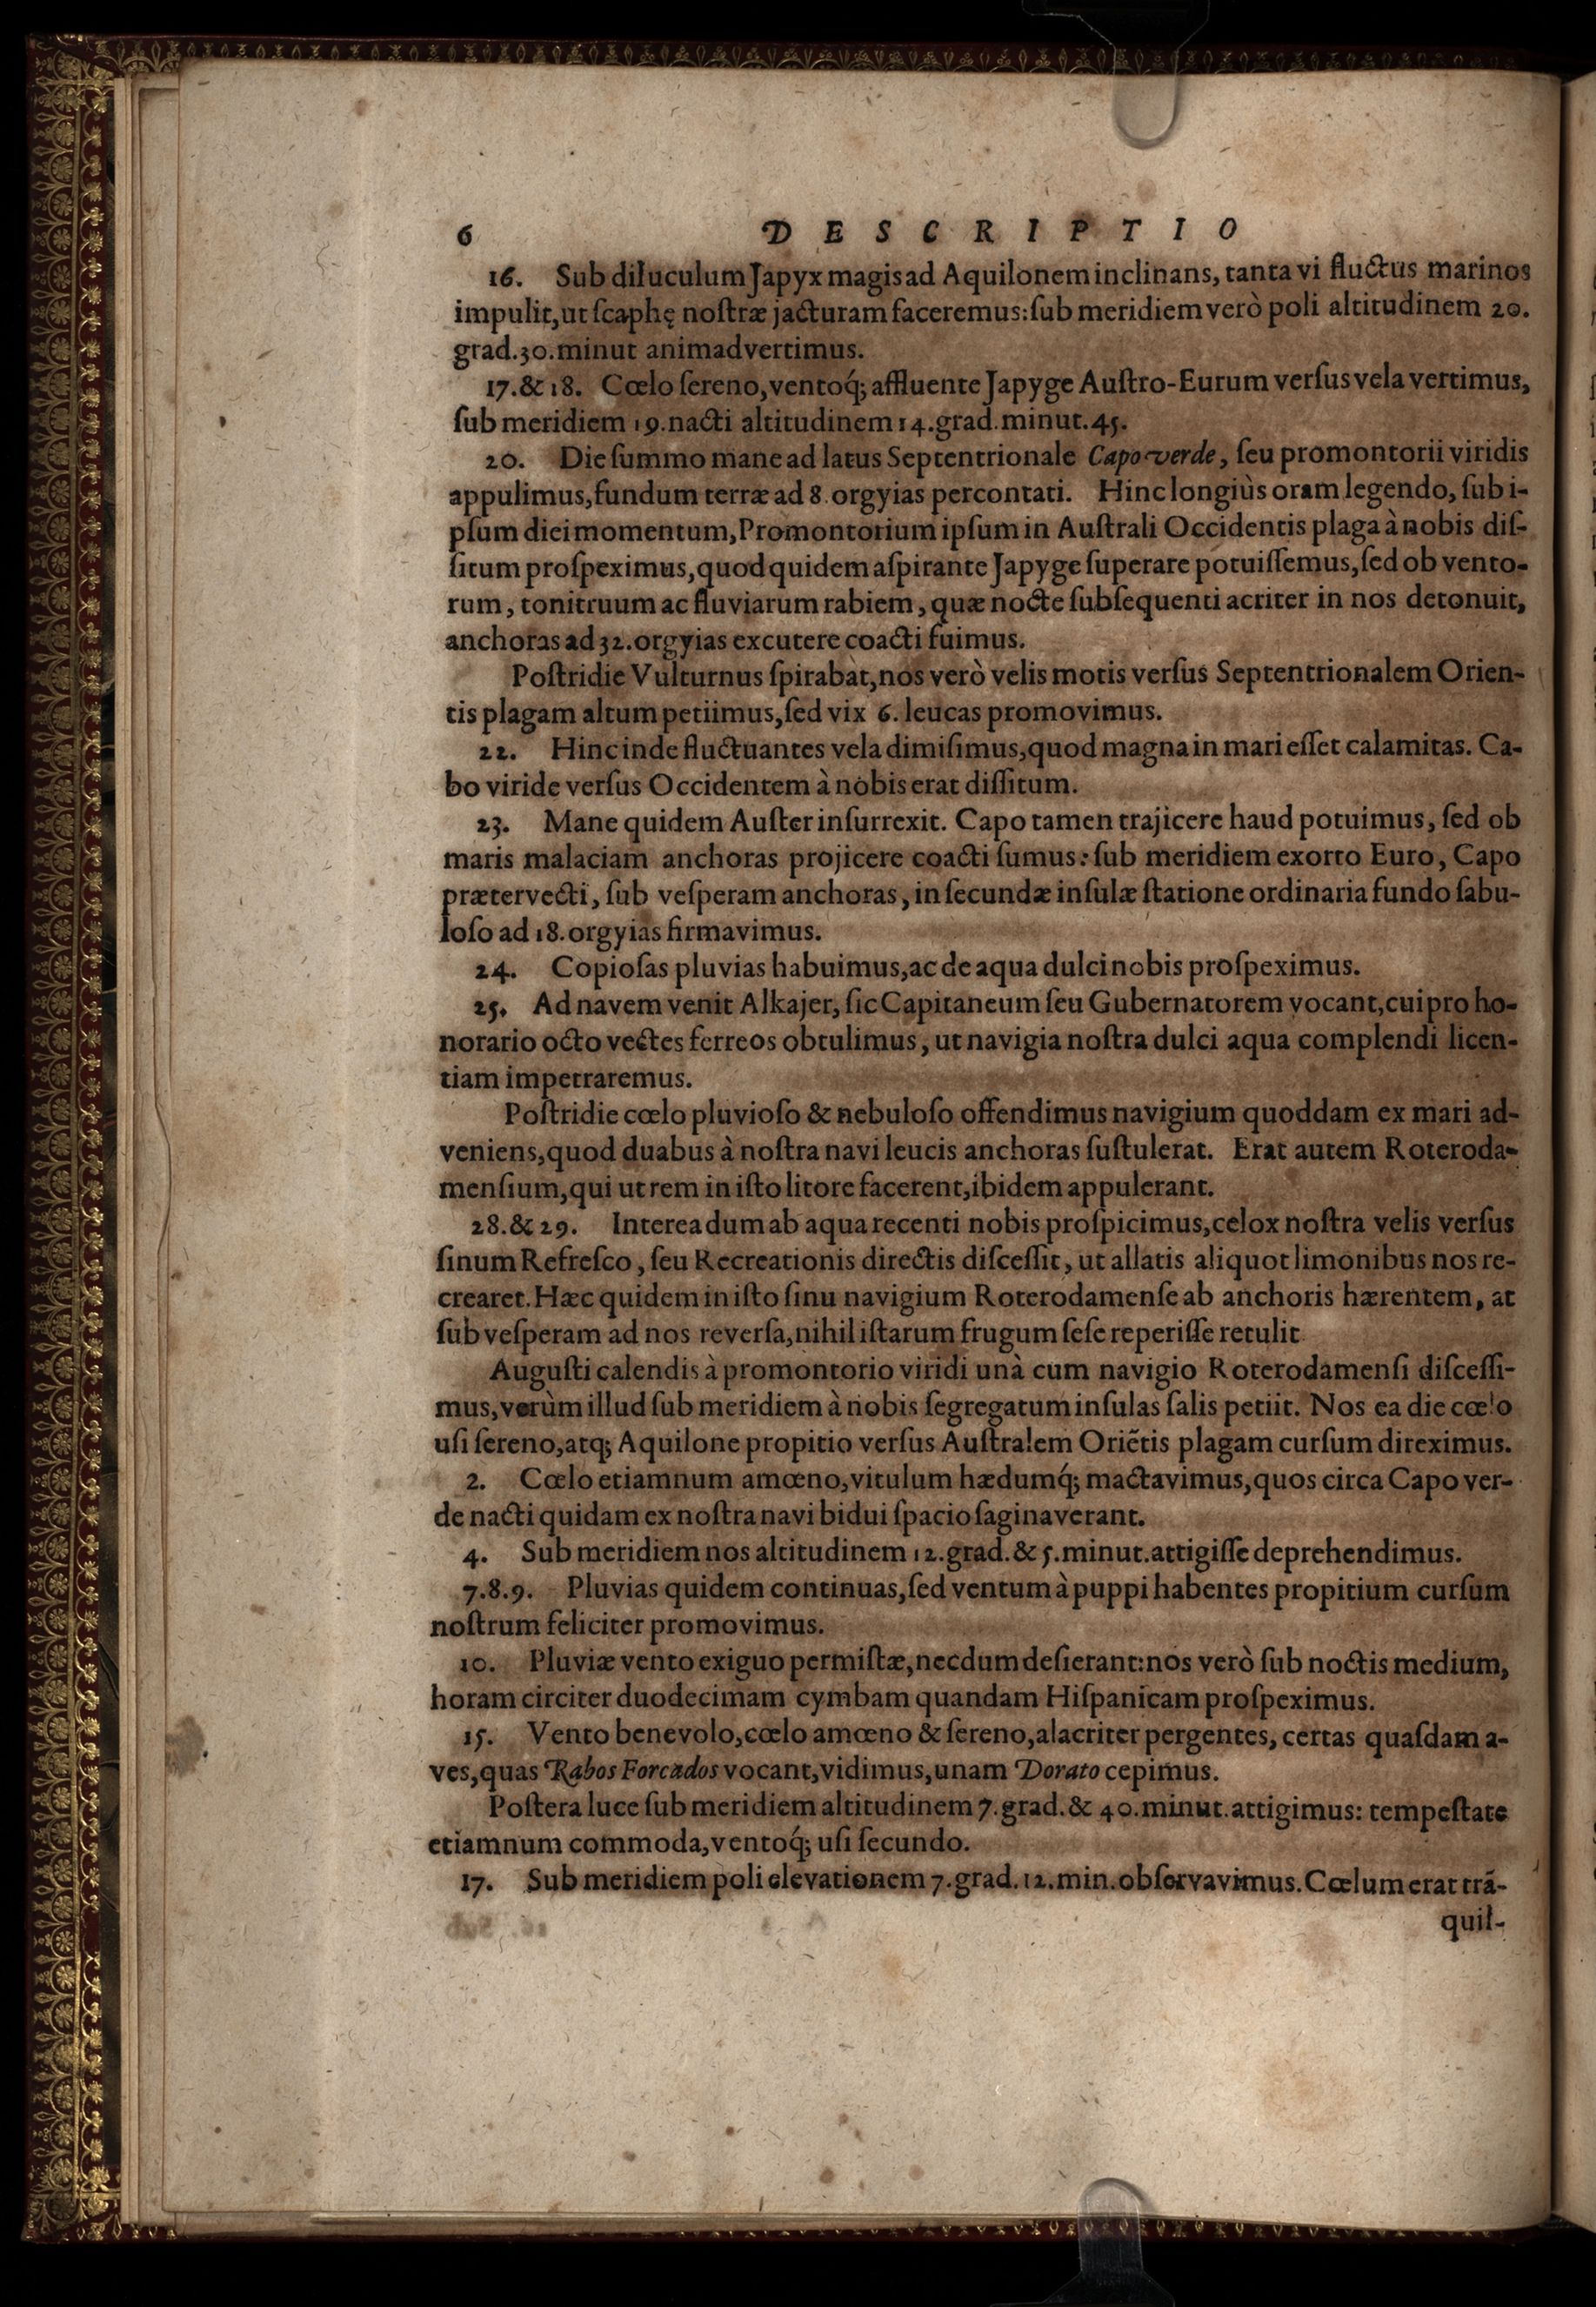 6 DESCRIPTIO
16. Sub diluculum Japyx magis ad Aquilonem inclinans, tanta vi fluctus marinos
impulit, ut ſcaphę noſtræ jacturam faceremus: ſub meridiem verò poli altitudinem 20.
grad. 30. minut animadvertimus.
17. & 18. Cœlo ſereno, ventoq́; affluente Japyge Auſtro-Eurum verſus vela vertimus,
ſub meridiem 19. nacti altitudinem 14. grad. minut. 45.
20. Die ſummo mane ad latus Septentrionale Capo verde, ſeu promontorii viridis
appulimus, fundum terræ ad 8. orgyias percontati. Hinc longiùs oram legendo, ſub i-
pſum diei momentum, Promontorium ipſum in Auſtrali Occidentis plaga à nobis diſ-
ſitum proſpeximus, quod quidem aſpirante Japyge ſuperare potuiſſemus, ſed ob vento-
rum, tonitruum ac fluviarum rabiem, quæ nocte ſubſequenti acriter in nos detonuit,
anchoras ad 32. orgyias excutere coacti fuimus.
Poſtridie Vulturnus ſpirabat, nos verò velis motis verſus Septentrionalem Orien-
tis plagam altum petiimus, ſed vix 6. leucas promovimus.
22. Hinc inde fluctuantes vela dimiſimus, quod magna in mari eſſet calamitas. Ca-
bo viride verſus Occidentem à nobis erat diſſitum.
23. Mane quidem Auſter inſurrexit. Capo tamen trajicere haud potuimus, ſed ob
maris malaciam anchoras projicere coacti ſumus: ſub meridiem exorto Euro, Capo
prætervecti, ſub veſperam anchoras, in ſecundæ inſulæ ſtatione ordinaria fundo ſabu-
loſo ad 18. orgyias firmavimus.
24. Copioſas pluvias habuimus, ac de aqua dulci nobis proſpeximus.
25. Ad navem venit Alkajer, ſic Capitaneum ſeu Gubernatorem vocant, cui pro ho-
norario octo vectes ferreos obtulimus, ut navigia noſtra dulci aqua complendi licen-
tiam impetraremus.
Poſtridie cœlo pluvioſo & nebuloſo offendimus navigium quoddam ex mari ad-
veniens, quod duabus à noſtra navi leucis anchoras ſuſtulerat. Erat autem Roteroda-
menſium, qui ut rem in iſto litore facerent, ibidem appulerant.
28. & 29. Interea dum ab aqua recenti nobis proſpicimus, celox noſtra velis verſus
ſinum Refreſco, ſeu Recreationis directis diſceſſit, ut allatis aliquot limonibus nos re-
crearet. Hæc quidem in iſto ſinu navigium Roterodamenſe ab anchoris hærentem, at
ſub veſperam ad nos reverſa, nihil iſtarum frugum ſeſe reperiſſe retulit
Auguſti calendis à promontorio viridi unà cum navigio Roterodamenſi diſceſſi-
mus, verùm illud ſub meridiem à nobis ſegregatum inſulas ſalis petiit. Nos ea die cœlo
uſi ſereno, atq; Aquilone propitio verſus Auſtralem Oriẽtis plagam curſum direximus.
2. Cœlo etiamnum amœno, vitulum hædumq́; mactavimus, quos circa Capo ver-
de nacti quidam ex noſtra navi bidui ſpacio ſaginaverant.
4. Sub meridiem nos altitudinem 12. grad. & 5. minut. attigiſſe deprehendimus.
7. 8. 9. Pluvias quidem continuas, ſed ventum à puppi habentes propitium curſum
noſtrum feliciter promovimus.
10. Pluviæ vento exiguo permiſtæ, necdum deſierant: nos verò ſub noctis medium,
horam circiter duodecimam cymbam quandam Hiſpanicam proſpeximus.
15. Vento benevolo, cœlo amœno & ſereno, alacriter pergentes, certas quaſdam a-
ves, quas Rabos Forcados vocant, vidimus, unam Dorato cepimus.
Poſtera luce ſub meridiem altitudinem 7. grad. & 40. minut. attigimus: tempeſtate
etiamnum commoda, ventoq́; uſi ſecundo.
17. Sub meridiem poli elevationem 7. grad. 12. min. obſervavimus. Cœlum erat trã-
quil-